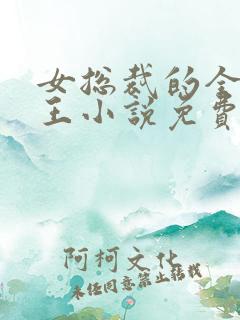 女总裁的全
王小说免费
阿柯文化
未经同意禁止转载